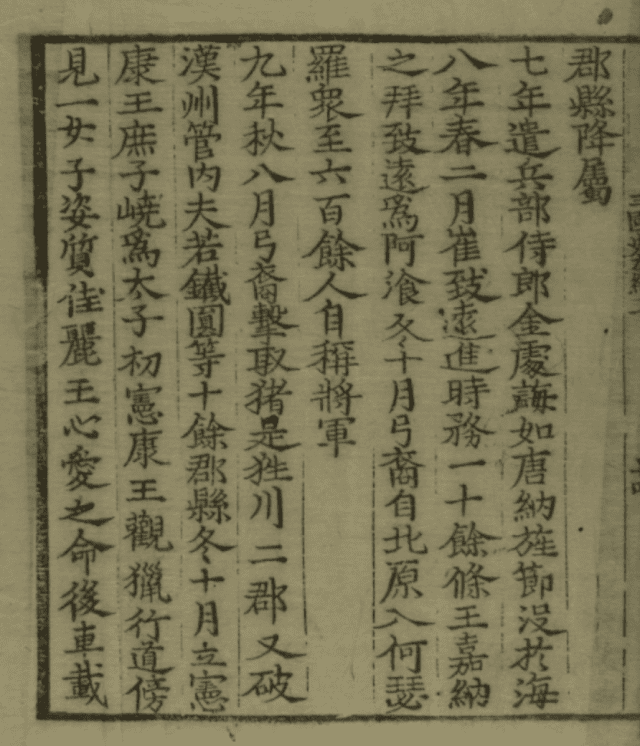 郡縣降屬
七年遣兵部侍郎金處誨如唐納旌節没於海
八年春二月崔致遠進時務一十餘條王嘉納
之拜致遠爲阿飡冬十月弓裔自北原入何瑟
羅衆至六百餘人自稱將軍
九年秋八月弓裔擊取猪是狌川二郡又破
漢州管内夫若鐵圓等十餘郡縣冬十月立憲
康王庶子嶢爲太子初憲康王觀獵行道傍
見一女子姿質佳麗王心愛之命後車載